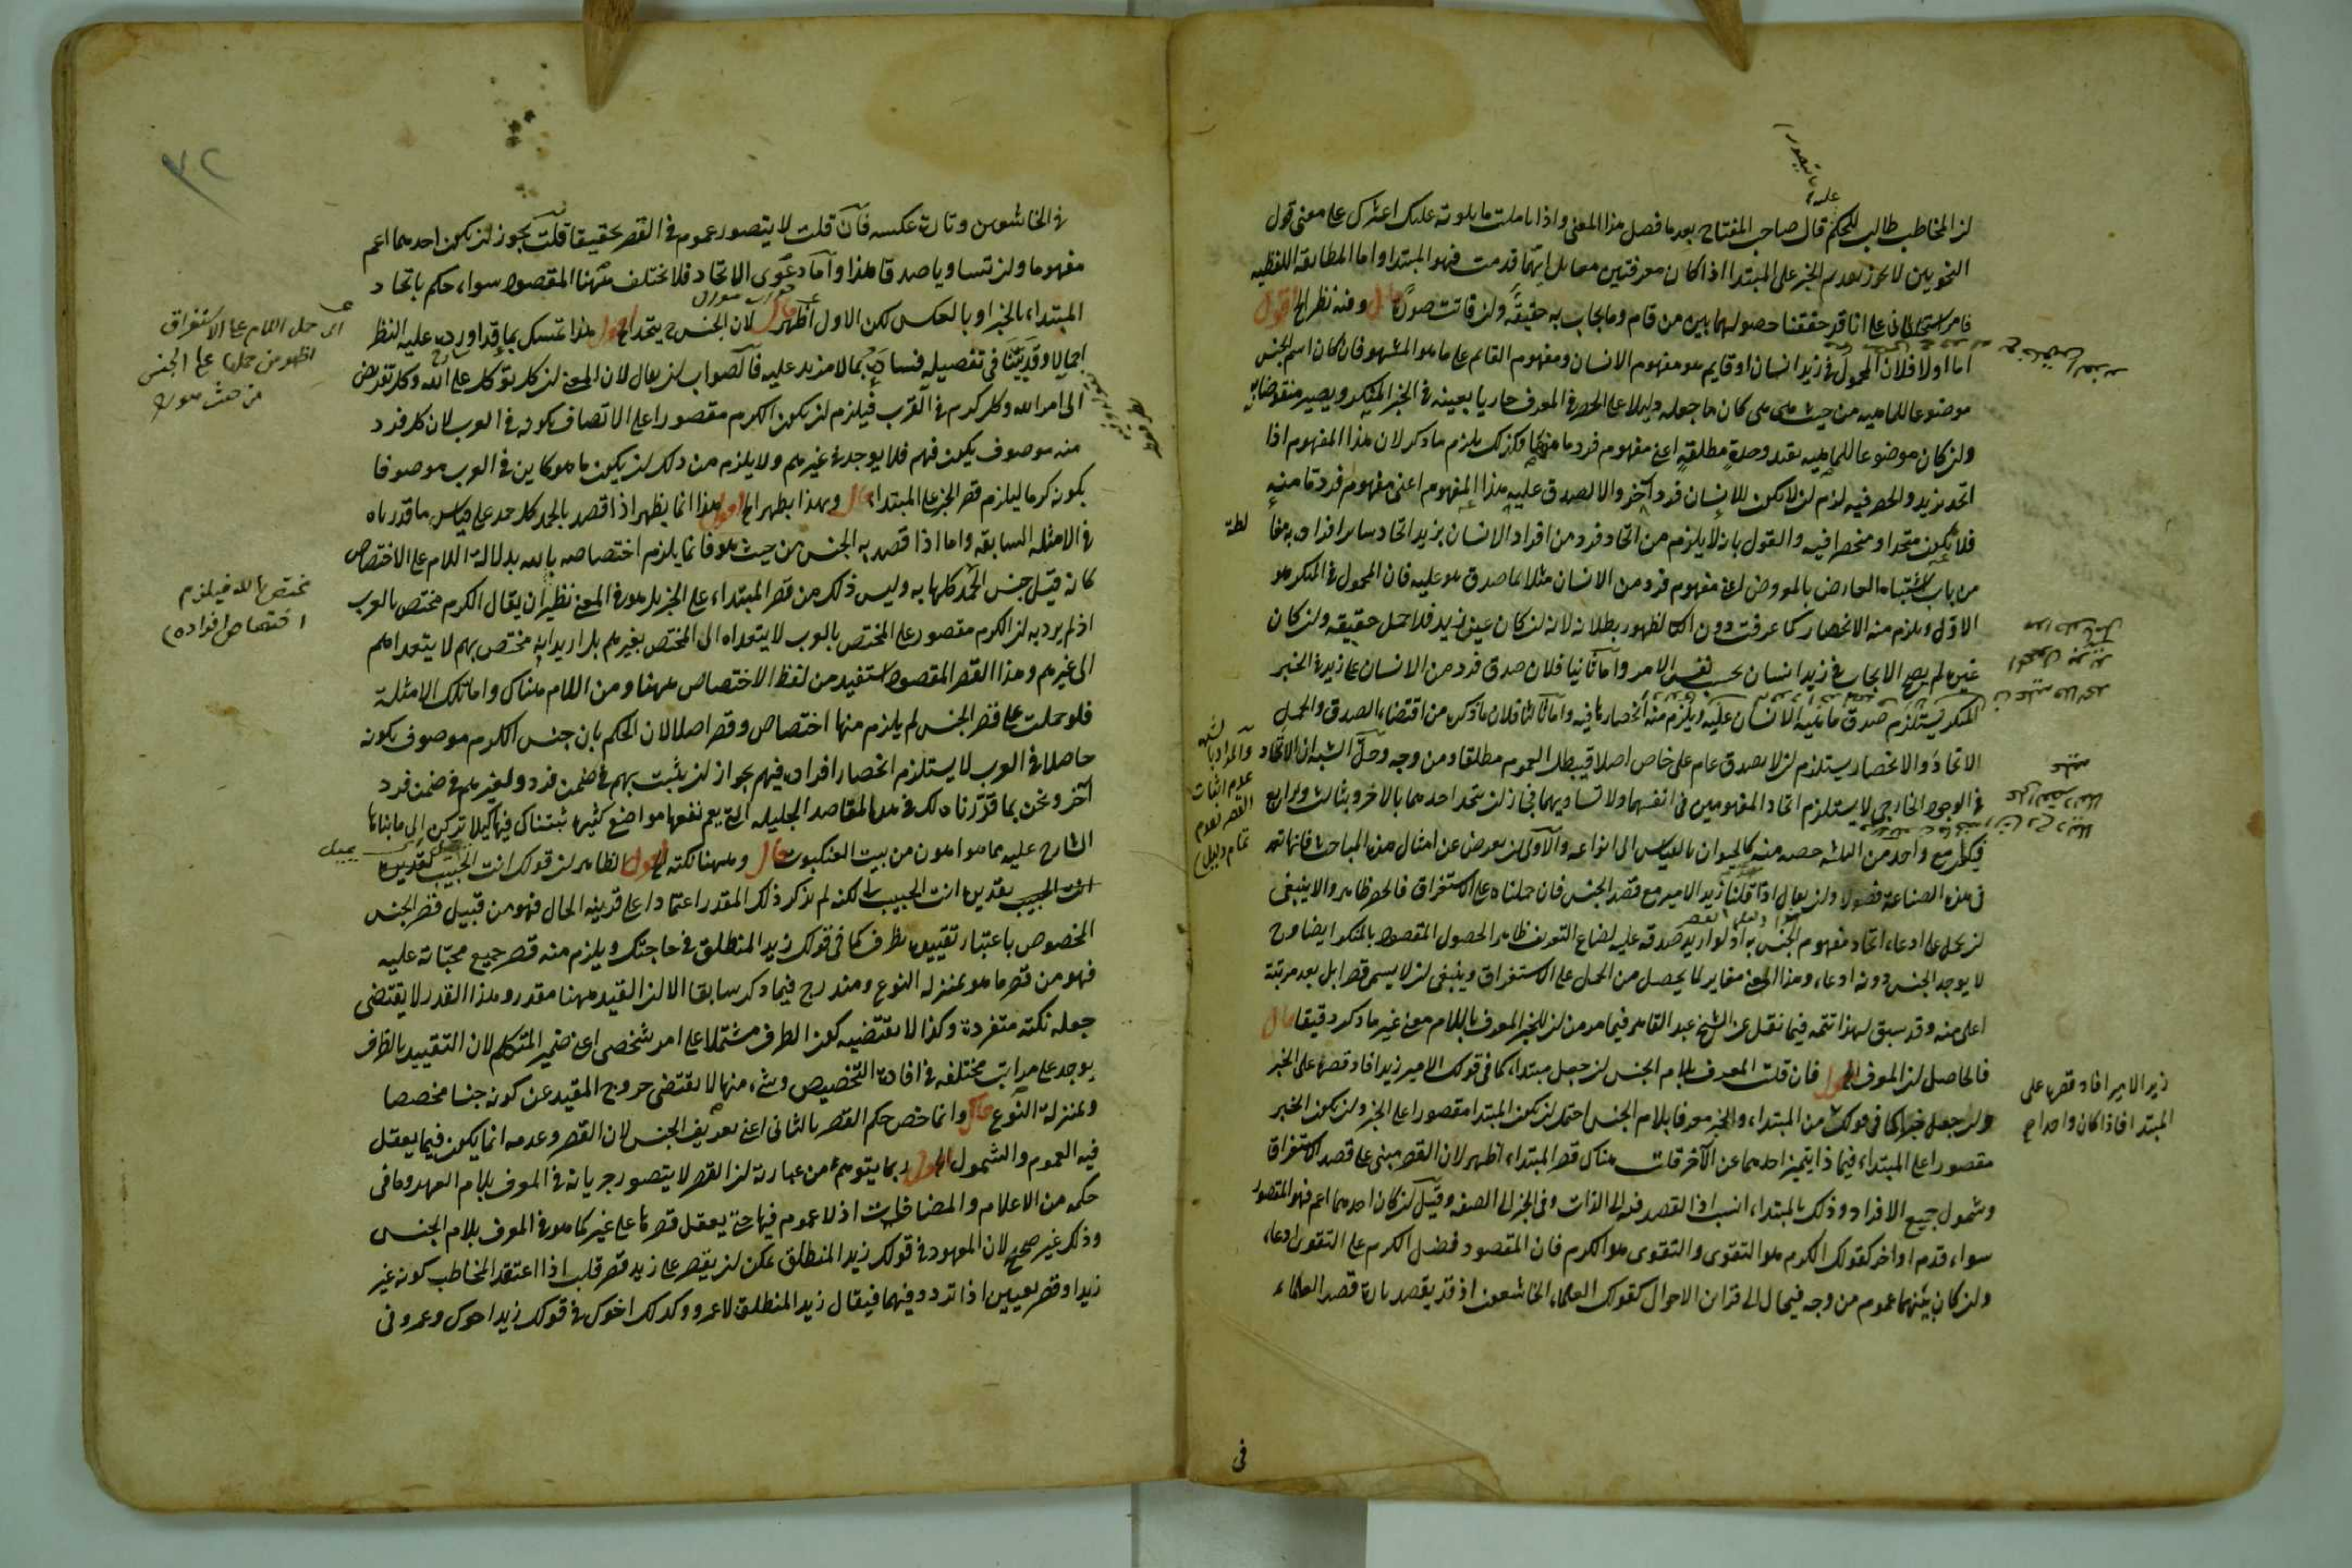 لان المخاطب طالب للحكم قال صاحب المفتاح بعد ما فصل هذا المعنى واذا تاملت ما تلوته عليك اعثرك على معنى قول
النحويين لا يجوز تقديم الخبر على المبتدا اذا كانا معرفتين معا بل ايهما قدمت فهو المبتدا واما المطابقة اللفظية
على انا قد حققنا حصولها بين من قام وما يجاب به حقيقة وان فاتت صورة قال وفيه نظر الخ اقول
اما اولا فلان المحمول في زيد انسان او قايم هو مفهوم الانسان ومفهوم القائم على ما هو المشهور فان كان اسم الجنس
موضوعا للماهية من حيث هي هي كان ما جعله دليلا على الحصر في المعرف جاريا بعينه في الخبر المنكر ويصير منقوضا به
وان كان موضوعا للماهية بقيد وحدة مطلقة اعني مفهوم فرد ما منها وكذلك يلزم ما ذكر لان هذا المفهوم اذا
اتحد بزيد وانحصر فيه لزم ان لا يكون للانسان فرد آخر والا لصدق عليه هذا المفهوم اعني مفهوم فرد ما منه
فلا يكون متحدا ومنحصرا فيه والقول بانه لا يلزم من اتحاد فرد من افراد الانسان بزيد اتحاد سائر افراده به مغالطة
من باب اشتباه العارض بالمعروض اعني مفهوم فرد من الانسان مثلا بما صدق هو عليه فان المحمول في المنكر هو
الاول ويلزم منه الانحصار كما عرفت دون الثاني لظهور بطلانه لانه ان كان عين زيد فلا حمل حقيقة وان كان
غيره لم يصح الايجاب في زيد انسان بحسب نفس الامر واما ثانيا فلان صدق فرد من الانسان على زيد في الخبر
المنكر يستلزم صدق ماهية الانسان عليه ويلزم منه انحصارها فيه واما ثالثا فلان ما ذكره من اقتضاء الصدق والحمل
الاتحاد والانحصار يستلزم ان لا يصدق عام على خاص اصلا فيبطل العموم مطلقا ومن وجه وحل الشبهة ان الاتحاد
في الوجود الخارجي لا يستلزم اتحاد المفهومين في انفسهما ولا تساويهما فجاز ان يتحد احدهما بالآخر وبثالث ورابع
فيكون مع واحد من الثلثة حصة منه كالحيوان بالقياس الى انواعه والاولى ان يعرض عن امثال هذه المباحث فانها تعد
في هذه الصناعة فضولا وان يقال اذا قلنا زيد الامير مع قصد الجنس فان حملناه على الاستغراق فالحصر ظاهر والا ينبغي
ان يحمل على ادعاء اتحاد مفهوم الجنس به اذ لو اريد صدقه عليه لضاع التعريف ظاهرا لحصول المقصود بالمنكر ايضا وح
لا يوجد الجنس دونه ادعاء وهذا المعنى مغاير لما يحصل من الحمل على الاستغراق وينبغي ان لا يسمى قصرا بل بعد مرتبة
اعلى منه وقد سبق لهذا تتمة فيما نقل عن الشيخ عبد القاهر فيما مر من ان للخبر المعرف باللام معنى غير ما ذكر دقيقا قال
فالحاصل ان المعرف الخ اقول فان قلت المعرف بلام الجنس ان جعل مبتداء كما في قولك الامير زيد افاد قصره على الخبر
وان جعل خبرا كما في قولك من المبتداء والخبر معرفا بلام الجنس احتمل ان يكون المبتدا مقصورا على الخبر وان يكون الخبر
مقصورا على المبتداء فيماذا يتميز احدهما عن الآخر قلت هناك قصر المبتداء اظهر لان القصر مبني على قصد الاستغراق
وشمول جميع الافراد وذلك بالمبتداء انسب اذ القصد فيه الى الذات وفي الخبر الى الصفة وقيل ان كان احدهما اعم فهو المقصور
سواء قدم او اخر كقولك الكرم هو التقوى والتقوى هو الكرم فان المقصود فضل الكرم على التقوى ادعاء
وان كان بينهما عموم من وجه فيحال الى قراين الاحوال كقولك العلماء الخاشعون اذ قد يقصد تارة قصر العلماء
زيد الامير افاد قصره على
المبتدا فاذا كان واحد
في
٣٢
في الخاشعين وتارة عكسه فان قلت لا يتصور عموم في القصر تحقيقا قلت يجوز ان يكون احدهما اعم
مفهوما وان تساويا صدقا هذا واما دعوى الاتحاد فلا تختلف ههنا المقصود سواء حكم باتحاد
المبتداء بالخبر او بالعكس لكن الاول اظهر قال لان الجنس ح يتحد الخ اقول هذا تمسك بما قد اورد عليه النظر
اجمالا وقد بينا في تفصيله فساده بما لا مزيد عليه فالصواب ان يقال لان المعنى ان كل توكل على الله وكل تفويض
الى امر الله وكل كرم في العرب فيلزم ان يكون الكرم مقصورا على الاتصاف بكونه في العرب لان كل فرد
منه موصوف بكونه فيهم فلا يوجد في غيرهم ولا يلزم من ذلك ان يكون ما هو كاين في العرب موصوفا
بكونه كرما ليلزم قصر الخبر على المبتداء قال وبهذا يظهر الخ اقول هذا انما يظهر اذا قصد بالحمد كل حمد على قياس ما قررناه
في الامثلة السابقة واما اذا قصد به الجنس من حيث هو فانما يلزم اختصاصه بالله بدلالة اللام على الاختصاص
كانه قيل جنس الحمد كلها به وليس ذلك من قصر المبتداء على الخبر بل هو في المعنى نظير ان يقال الكرم مختص بالعرب
اذ لم يرد به ان الكرم مقصور على المختص بالعرب لا يتعداه الى المختص بغيرهم بل اريد انه مختص بهم لا يتعداهم
الى غيرهم وهذا القصر المقصود استفيد من لفظ الاختصاص ههنا ومن اللام هناك واما تلك الامثلة
فلو حملت على قصر الجنس لم يلزم منها اختصاص وقصر اصلا لان الحكم بان جنس الكرم موصوف بكونه
حاصلا في العرب لا يستلزم انحصار افراده فيهم بجواز ان يثبت بهم في ضمن فرد ولغيرهم في ضمن فرد
آخر ونحن بما قررناه لك في هذه المقاصد الجليلة التي يعم نفعها مواضع كثيرة ثبتناك فيها كيلا تركن الى ما بناها
الشارح عليه مما هو اهون من بيت العنكبوت قال وههنا نكتة الخ اقول الظاهر ان قولك انت الحبيب تقديره
انت الحبيب الا لكنه لم يذكر ذلك المقدر اعتمادا على قرينة الحال فهو من قبيل قصر الجنس
المخصوص باعتبار تقييده بظرف كما في قولك زيد المنطلق في حاجتك ويلزم منه قصر جميع محباته عليه
فهو من قصر ما هو بمنزلة النوع ومندرج فيما ذكر سابقا الا ان القيد ههنا مقدر وهذا القدر لا يقتضي
جعله نكتة متفردة وكذا لا يقتضيه كون الظرف مشتملا على امر شخصي اعني ضمير المتكلم لان التقييد بالظرف
يوجد على مراتب مختلفة في افادة التخصيص وشيء منها لا يقتضي خروج المقيد عن كونه جنسا مخصصا
وبمنزلة النوع قال وانما خص حكم القصر بالثاني اعني تعريف الجنس لان القصر وعدمه انما يكون فيما يعقل
فيه العموم والشمول اقول ربما يتوهم من عبارته ان القصر لا يتصور جريانه في المعرف بلام العهد وما في
حكمه من الاعلام والمضافات اذ لا عموم فيها حتى يعقل قصرها على غير كما هو في المعرف بلام الجنس
وذلك غير صحيح لان المعهود في قولك زيد المنطلق يمكن ان يقصر على زيد قصر قلب اذا اعتقد المخاطب كونه غير
زيد او قصر تعيين اذا تردد فيهما فيقال زيد المنطلق لا عمرو وكذلك اخوك في قولك زيد اخوك وعمرو في
حمل اللام على الاستغراق
اظهر من حملها على الجنس
من حيث هو
مختصة بالله فيلزم
اختصاص افراده